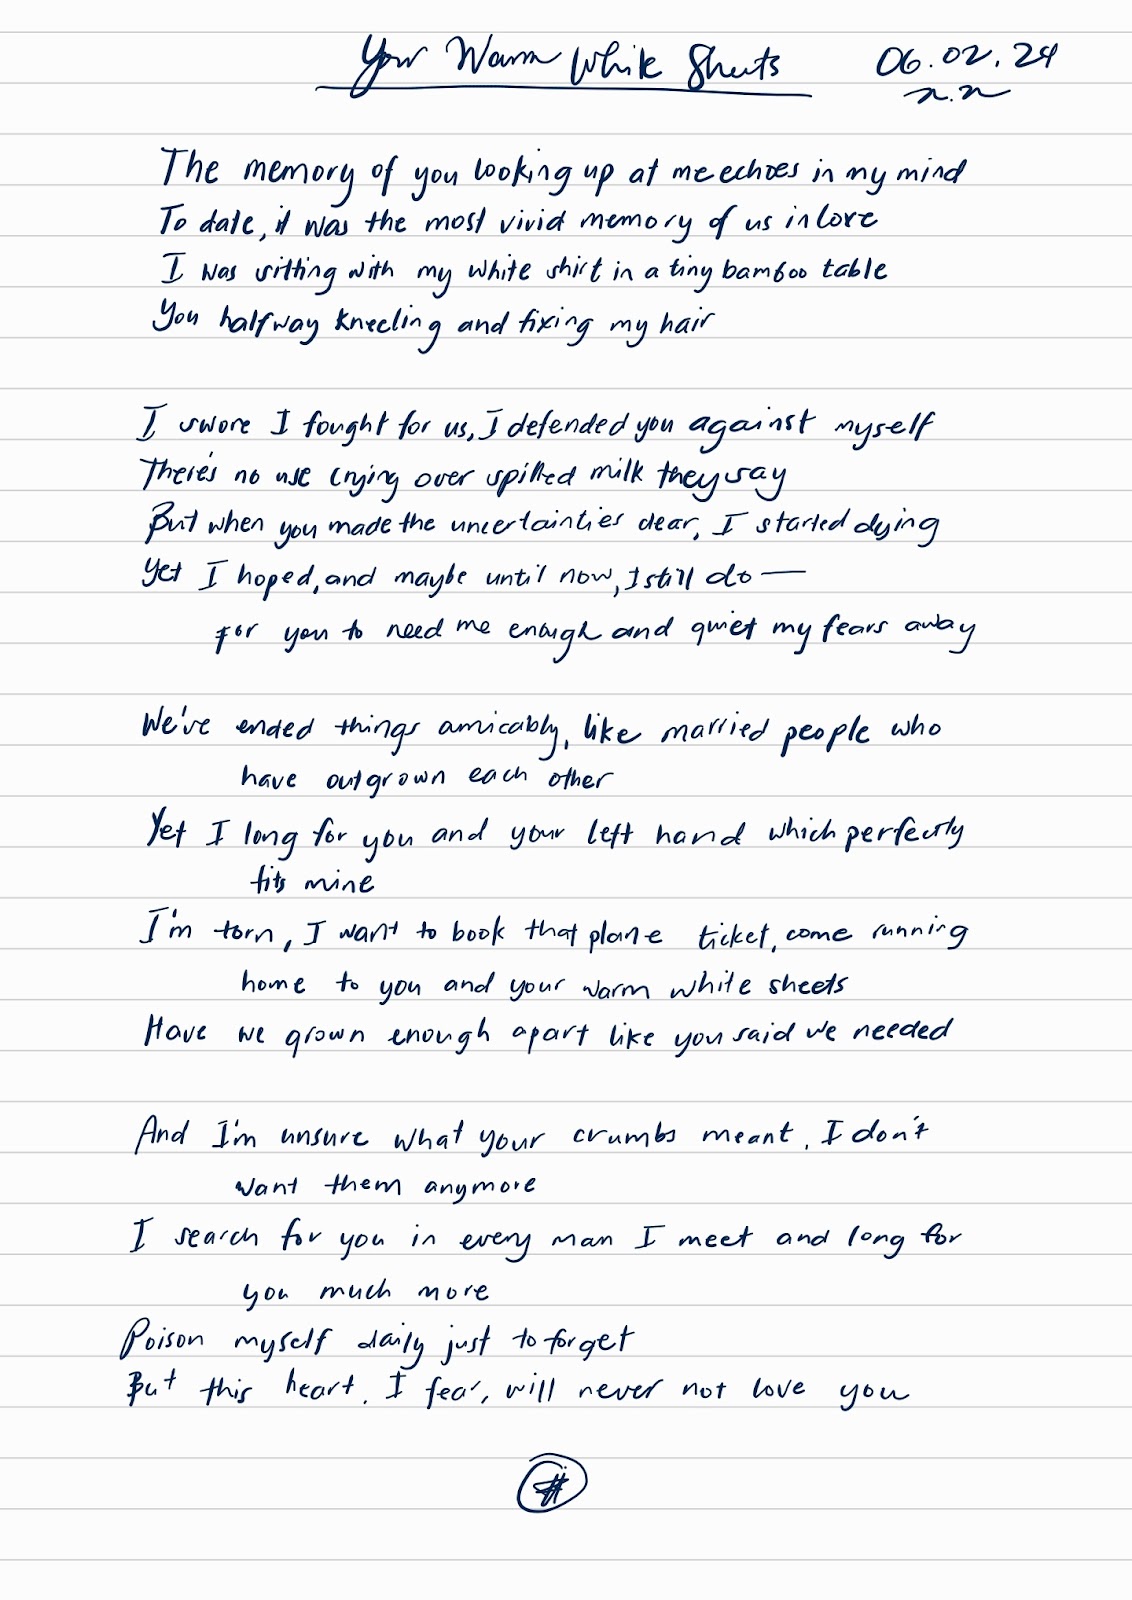 Your Warm White Sheets
06.02.24
n.n
The memory of you looking up at me echoes in my mind
To date, it was the most vivid memory of us in love
I was sitting with my white shirt in a tiny bamboo table
You halfway kneeling and fixing my hair
I swore I fought for us, I defended you against myself
There's no use crying over spilled milk they say
But when you made the uncertainties clear, I started dying
Yet I hoped, and maybe until now, I still do —
for you to need me enough and quiet my fears away
We've ended things amicably, like married people who
have outgrown each other
Yet I long for you and your left hand which perfectly
fits mine
I'm torn, I want to book that plane ticket, come running
home to you and your warm white sheets
Have we grown enough apart like you said we needed
And I'm unsure what your crumbs meant, I don't
want them anymore
I search for you in every man I meet and long for
you much more
Poison myself daily just to forget
But this heart, I fear, will never not love you